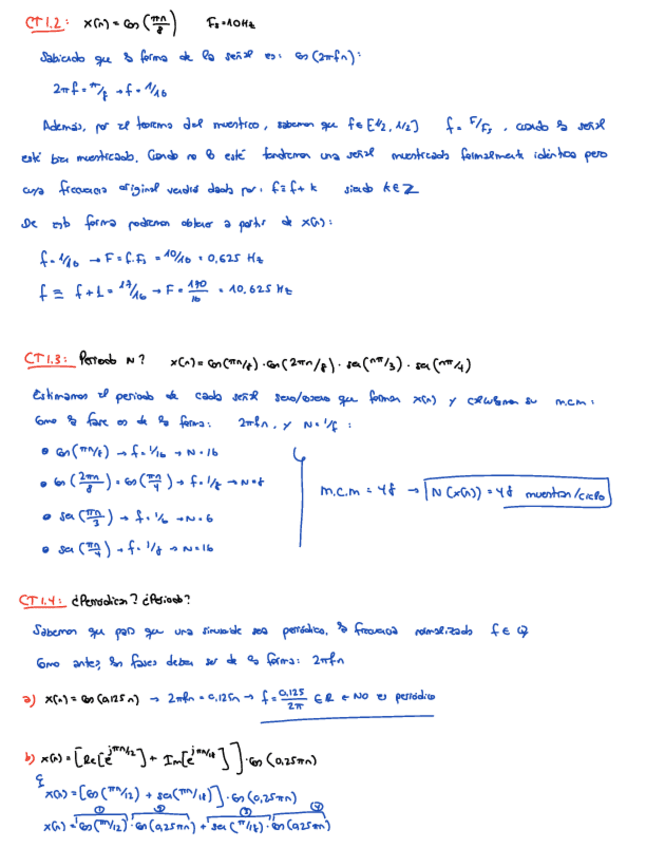 CT1.2: x(n) = cos(πn/8) Fs = 10Hz
Sabiendo que la forma de la señal es: cos(2πfn):
2πf = π/8 → f = 1/16
Además, por el teorema del muestreo, sabemos que f ∈ [-1/2, 1/2] f = F/Fs, cuando la señal
está bien muestreada. Cuando no lo esté tendremos una señal muestreada formalmente idéntica pero
cuya frecuencia original vendrá dada por: f ≅ f + k siendo k ∈ Z
De esta forma podremos obtener a partir de x(n):
f = 1/16 → F = f·Fs = 10/16 = 0,625 Hz
f ≅ f + 1 = 17/16 → F = 170/16 = 10,625 Hz
CT1.3: Periodo N? x(n) = cos(πn/8) · cos(2πn/8) · sen(nπ/3) · sen(nπ/4)
Estimamos el periodo de cada señal seno/coseno que forman x(n) y calculamos su m.c.m:
Como la fase es de la forma: 2πfn, y N = 1/f:
• cos(πn/8) → f = 1/16 → N = 16
• cos(2πn/8) = cos(πn/4) → f = 1/8 → N = 8
m.c.m = 48 → N(x(n)) = 48 muestras/ciclo
• sen(πn/3) → f = 1/6 → N = 6
• sen(πn/4) → f = 1/8 → N = 16
CT1.4: ¿Periódica? ¿Periodo?
Sabemos que para que una sinusoide sea periódica, la frecuencia normalizada f ∈ Q
Como antes, las fases deben ser de la forma: 2πfn
a) x(n) = cos(0,125n) → 2πfn = 0,125n → f = 0,125/2π ∈ R ← NO es periódico
b) x(n) = [Re[e^jπn/12] + Im[e^jπn/18]] · cos(0,25πn)
x(n) = [cos(πn/12) + sen(πn/18)] · cos(0,25πn)
① ② ③ ④
x(n) = cos(πn/12) · cos(0,25πn) + sen(π/18) · cos(0,25πn)